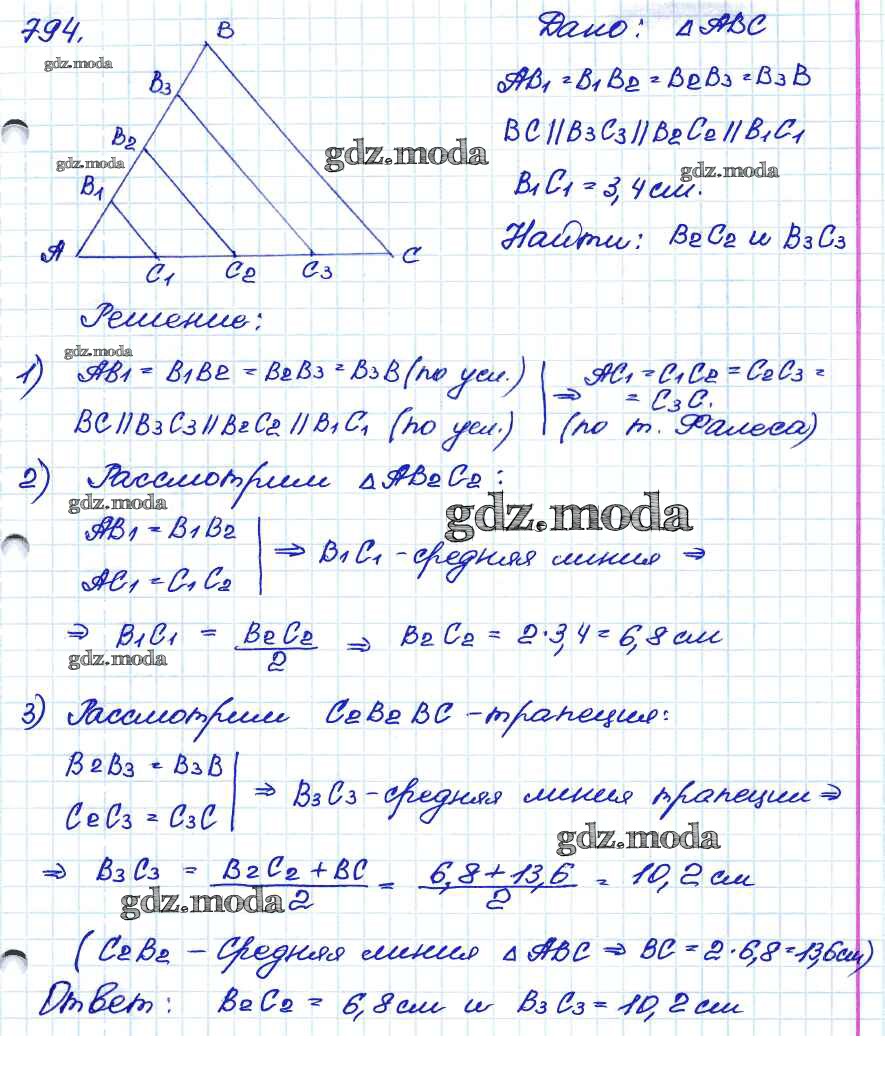 794.
gdz.moda
B
B3
B2
gdz.moda
B1
A
C1
C2
C3
C
Дано: △ABC
AB1 = B1B2 = B2B3 = B3B
gdz.moda
BC // B3C3 // B2C2 // B1C1
gdz.moda
B1C1 = 3,4 см.
Найти: B2C2 и B3C3
Решение:
gdz.moda
1) AB1 = B1B2 = B2B3 = B3B (по усл.)
BC // B3C3 // B2C2 // B1C1 (по усл.)
⇒ AC1 = C1C2 = C2C3 =
= C3C.
(по т. Фалеса)
2) Рассмотрим △AB2C2:
gdz.moda
gdz.moda
AB1 = B1B2
AC1 = C1C2
⇒ B1C1 - средняя линия ⇒
⇒ B1C1 = B2C2/2 ⇒ B2C2 = 2·3,4 = 6,8 см
gdz.moda
3) Рассмотрим C2B2BC - трапеция:
B2B3 = B3B
C2C3 = C3C
⇒ B3C3 - средняя линия трапеции ⇒
gdz.moda
⇒ B3C3 = B2C2 + BC/2 = 6,8 + 13,6/2 = 10,2 см
gdz.moda
(C2B2 - средняя линия △ABC ⇒ BC = 2·6,8 = 13,6 см)
Ответ: B2C2 = 6,8 см и B3C3 = 10,2 см